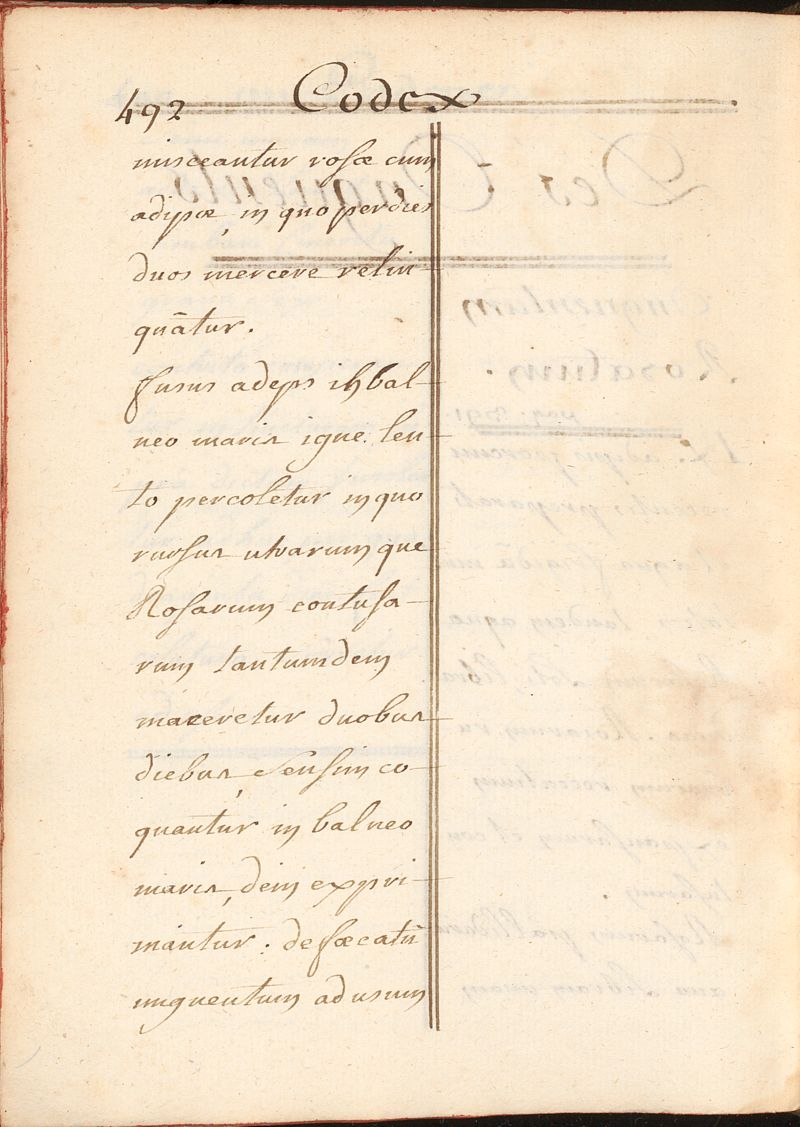 492 Codex
misceantur rosæ cum
adipæ, in quo per dies
duos mercere relin-
quātur.
fusus adeps in bal-
neo maris igne len-
to percoletur in quo
rursus utrarumque
Rosarum contusa-
rum tantumdem
maceretur duobus
diebus, sensim co-
quantur in balneo
maris, dein expri-
mantur. defæcatū
unguentum ad usum